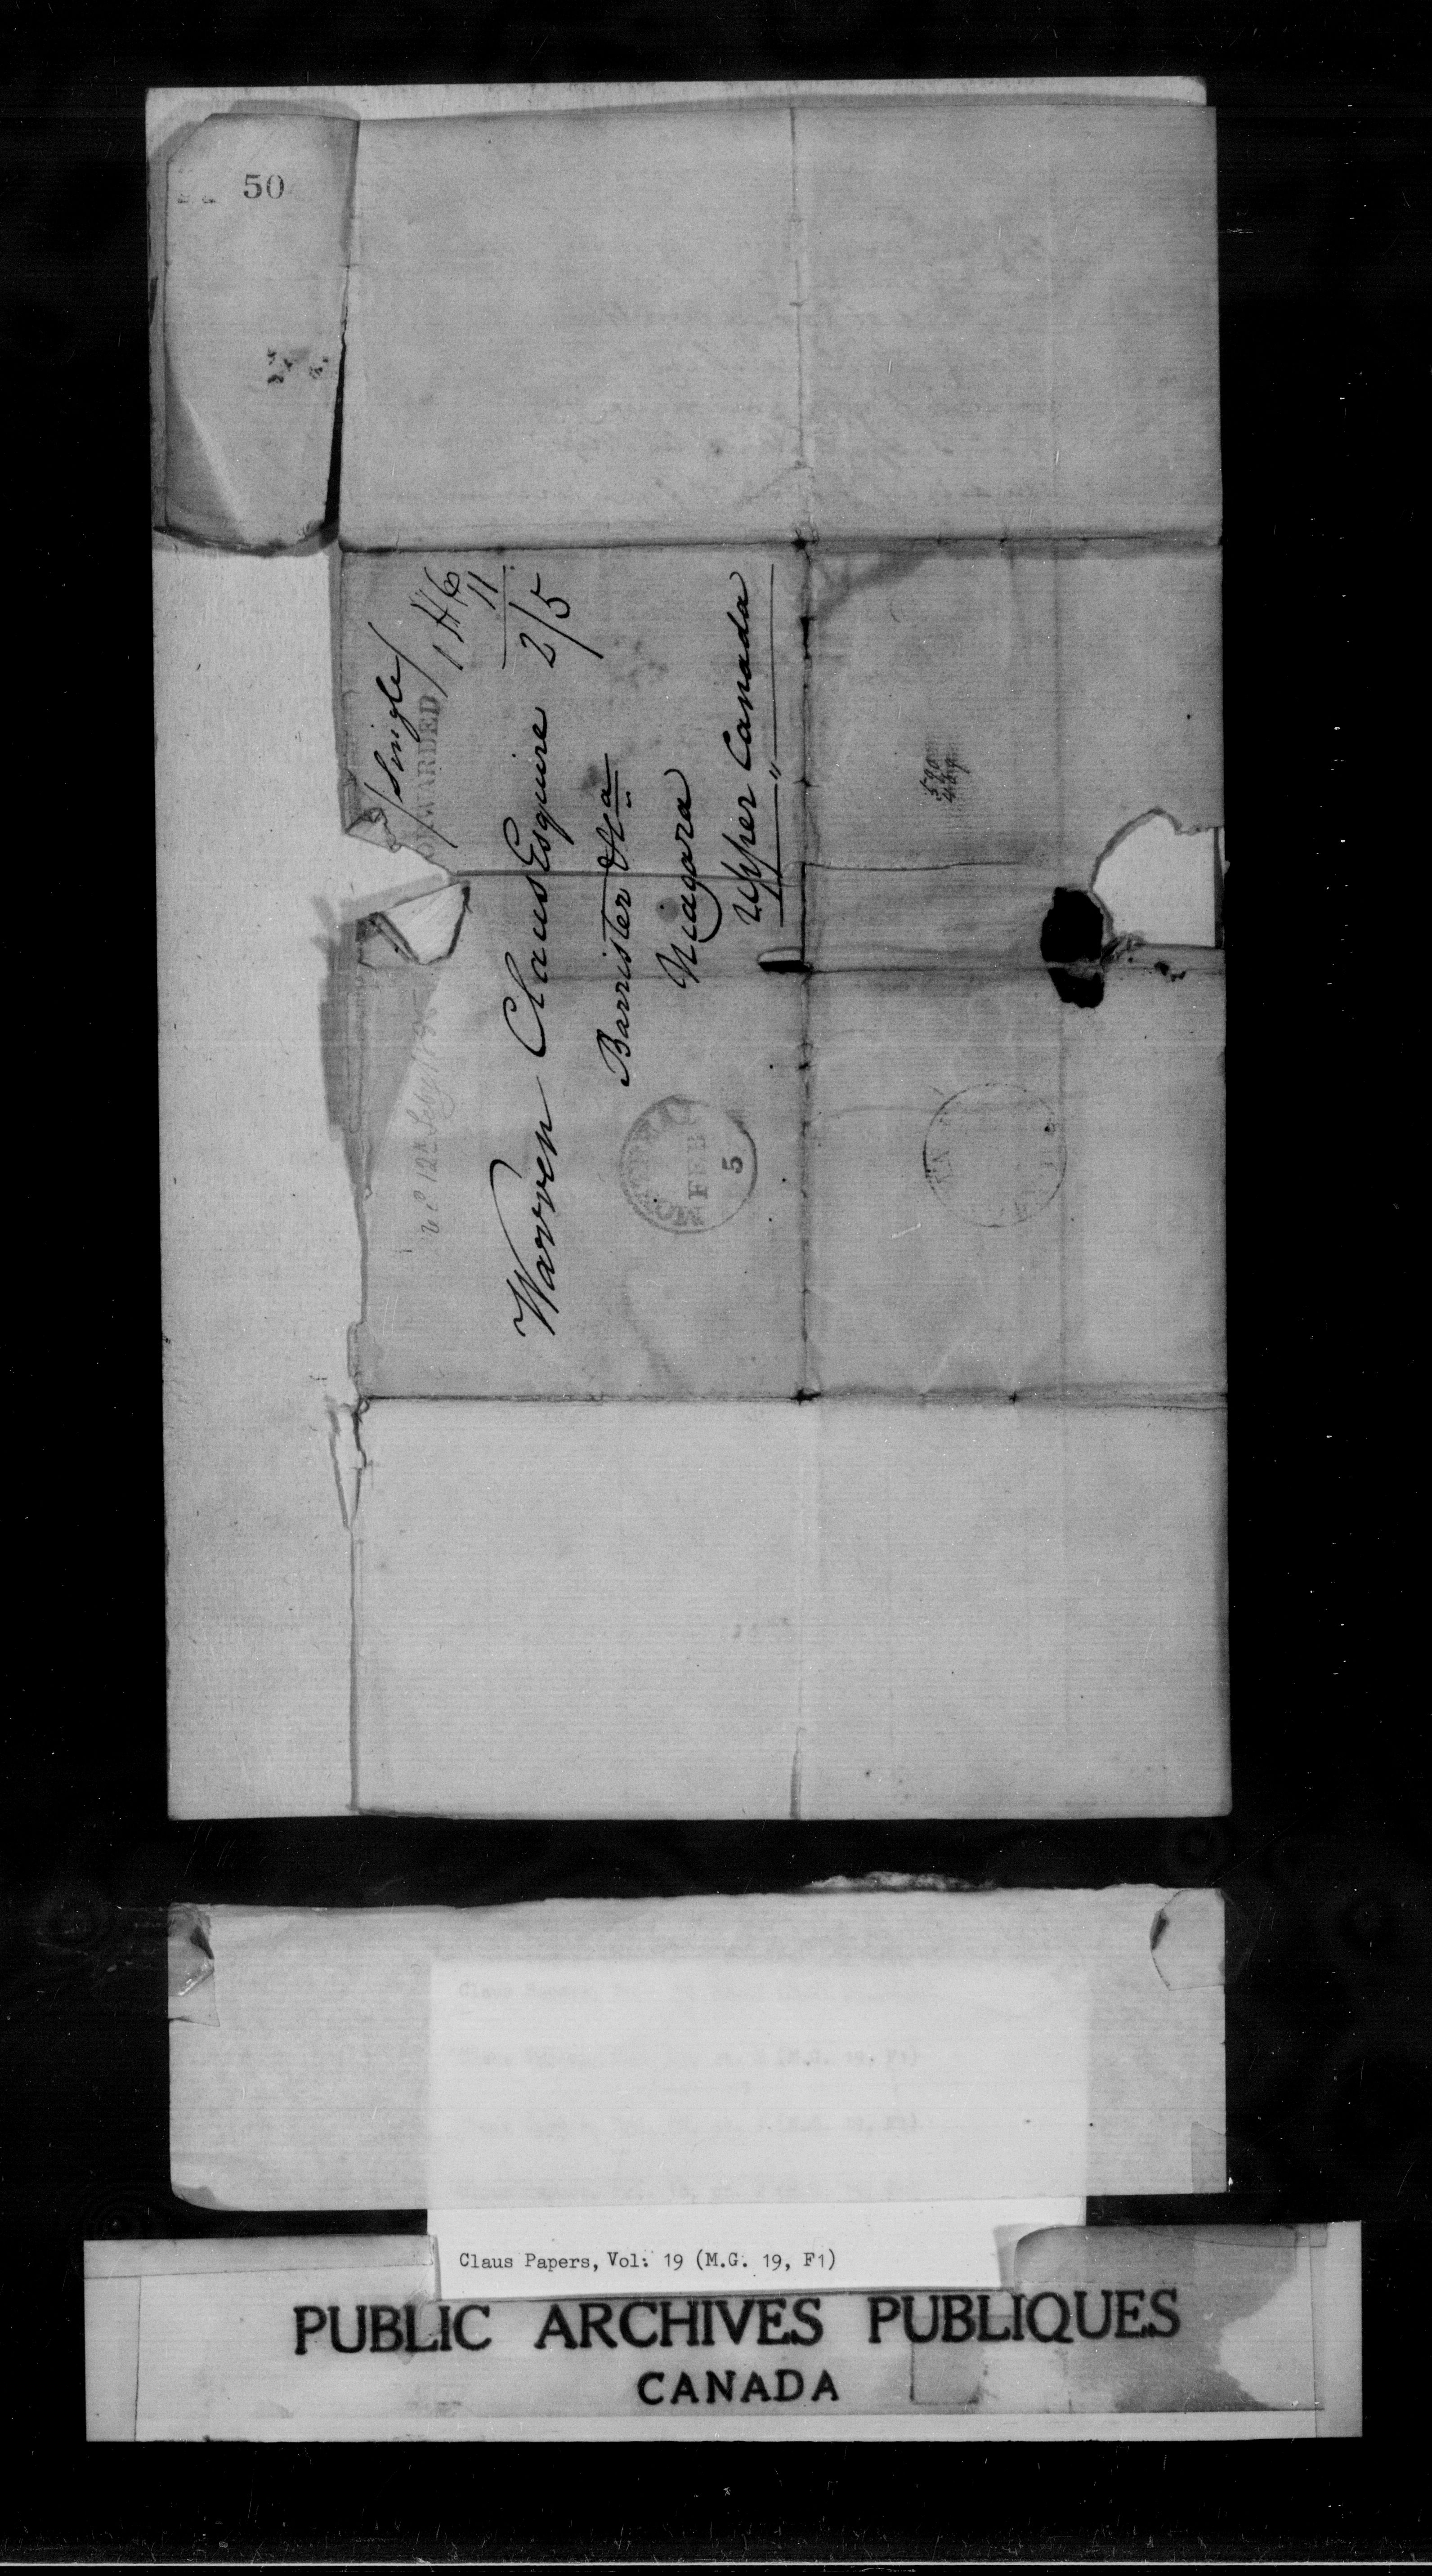 50
/Single/
FORWARDED
1 H 6
11
2/5
Warren Claus Esquire
Barrister &ca
Niagara
Upper Canada
MONTREAL
FEB
5
Claus Papers, Vol. 19 (M.G. 19, F1)
PUBLIC ARCHIVES PUBLIQUES
CANADA